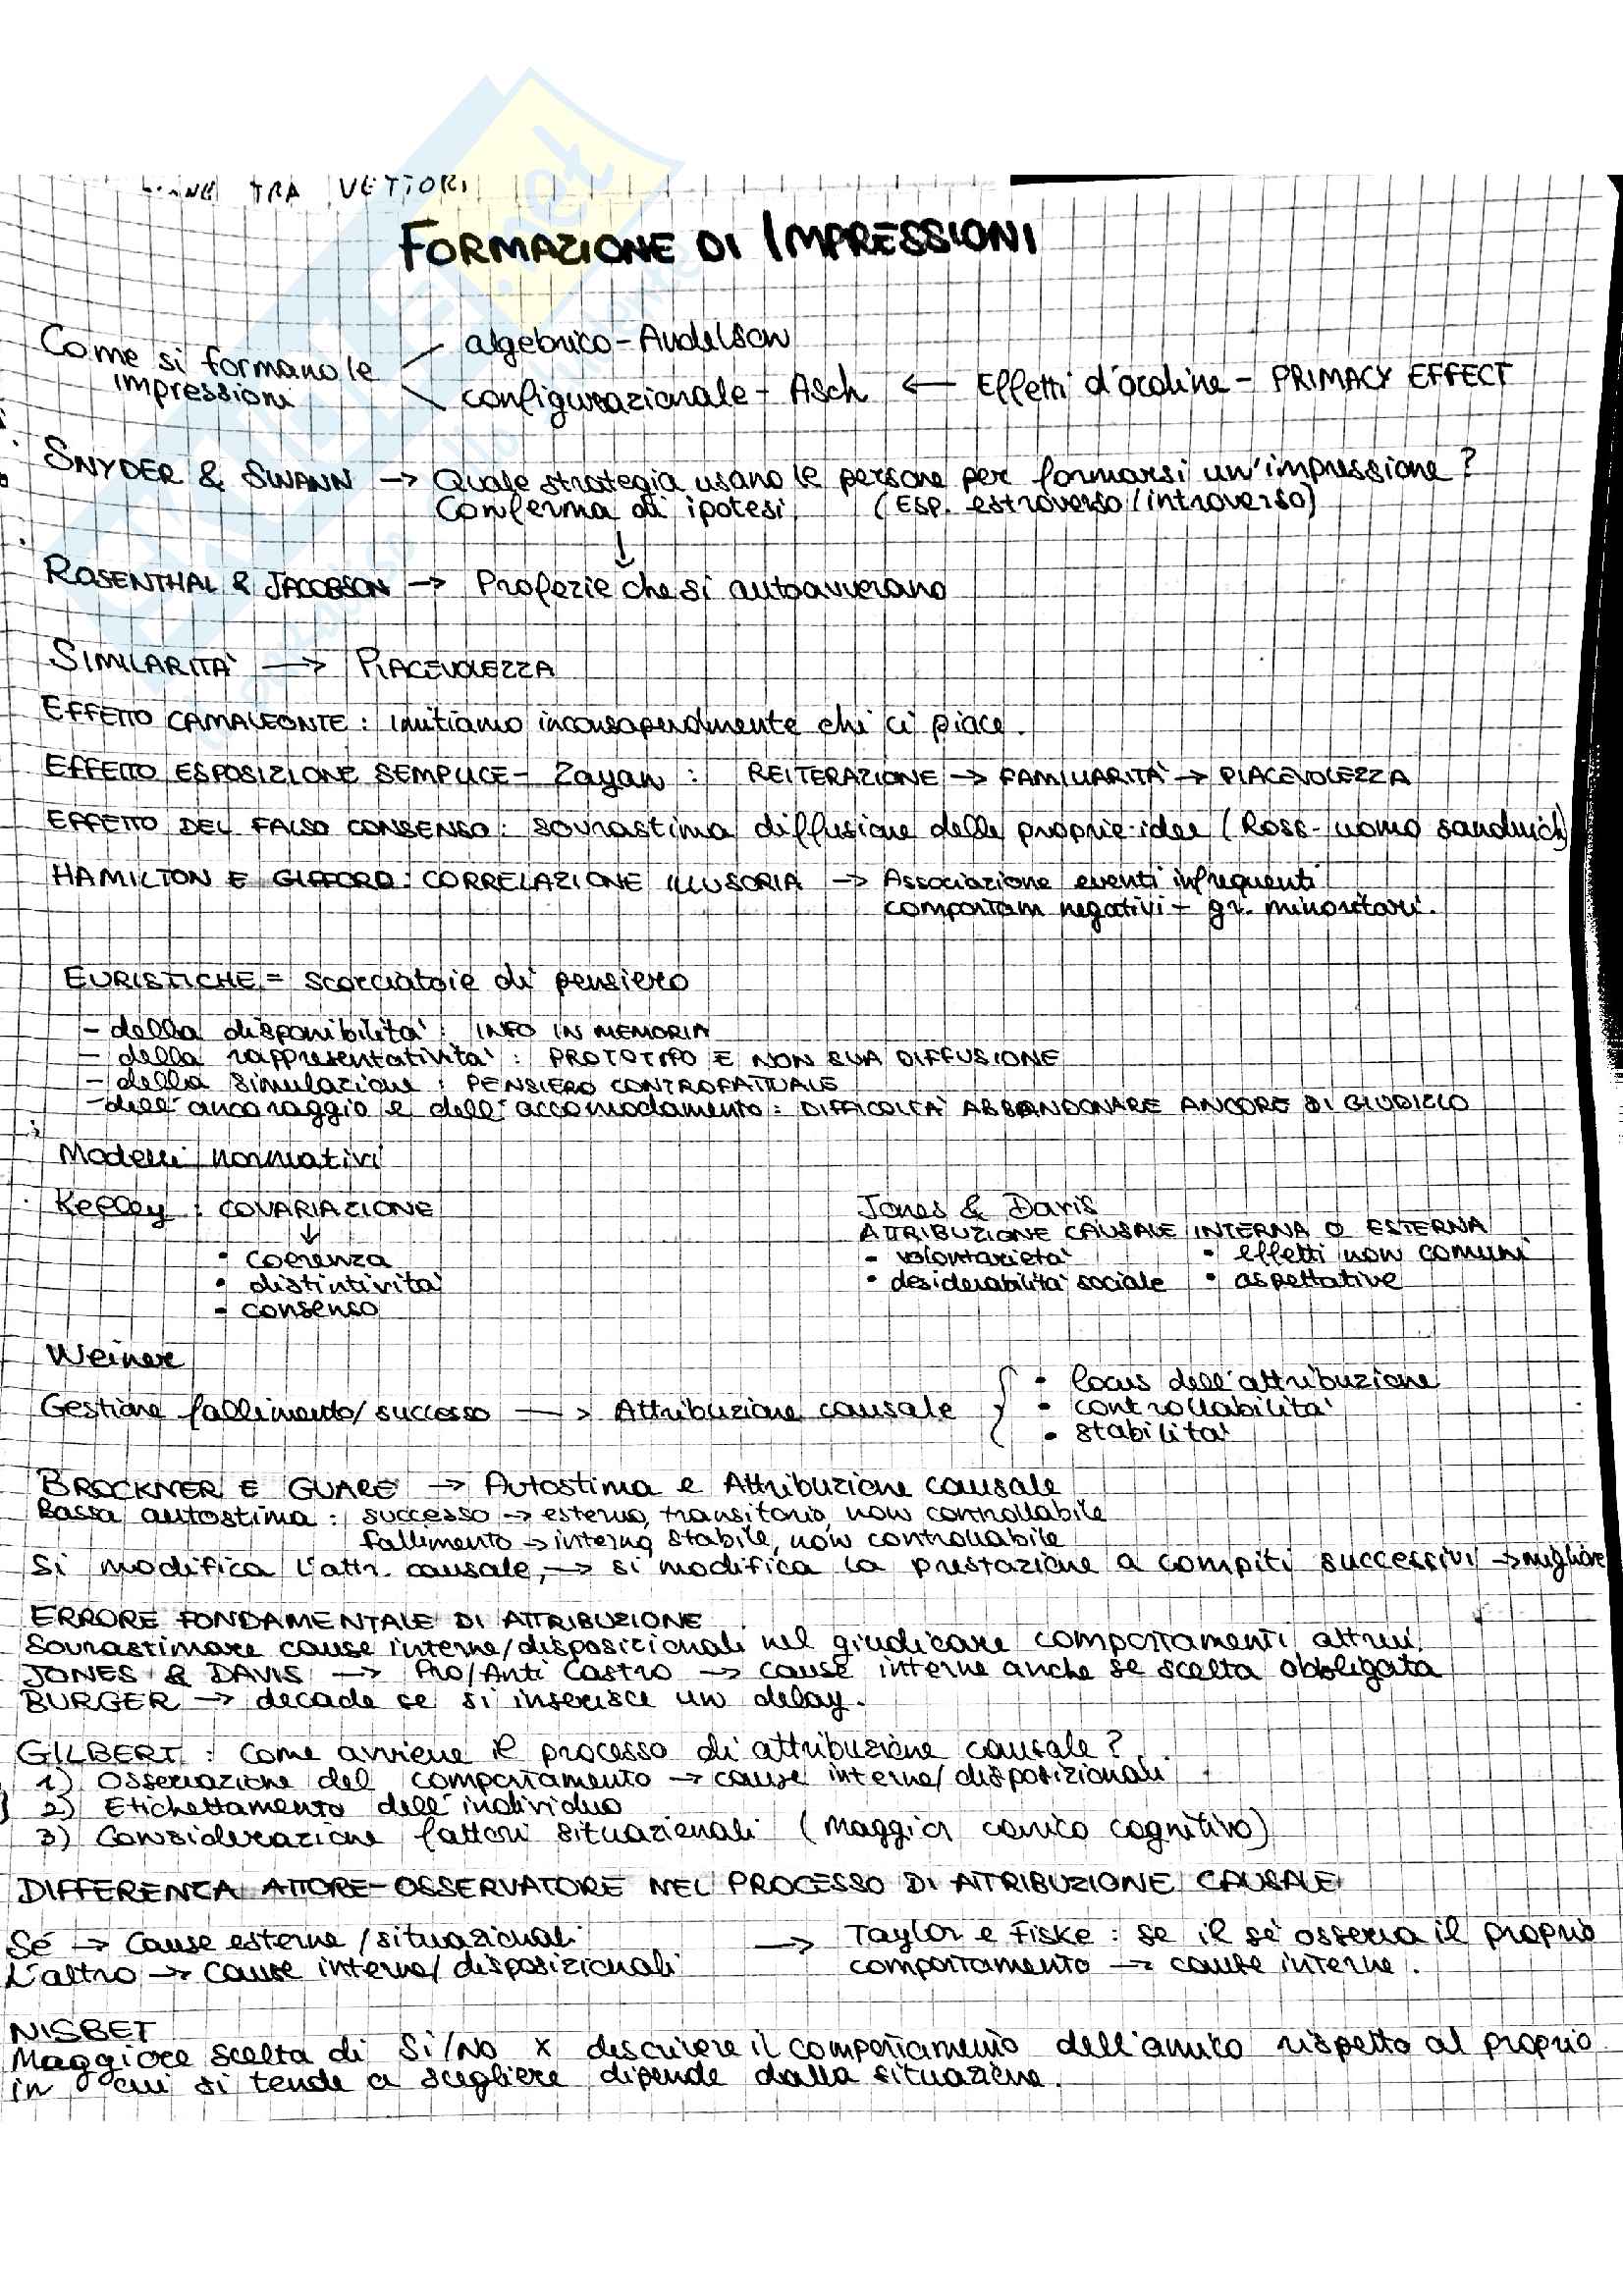 TRA VETTORI
FORMAZIONE DI IMPRESSIONI
Come si formano le impressioni
algebrico - Andelson
configurazionale - Asch ← Effetti d'ordine - PRIMACY EFFECT
SNYDER & SWANN → Quale strategia usano le persone per formarsi un'impressione?
Conferma di ipotesi (Esp. estroverso/introverso)
↓
ROSENTHAL & JACOBSON → Profezie che si autoavverano
SIMILARITA' → PIACEVOLEZZA
EFFETTO CAMALEONTE: imitiamo inconsapevolmente chi ci piace.
EFFETTO ESPOSIZIONE SEMPLICE - Zayan: REITERAZIONE → FAMILIARITA' → PIACEVOLEZZA
EFFETTO DEL FALSO CONSENSO: sovrastima diffusione delle proprie idee (Ross - uomo sandwich)
HAMILTON E GIFFORD: CORRELAZIONE ILLUSORIA → Associazione eventi infrequenti
comportam negativi - gr. minoritari.
EURISTICHE = scorciatoie di pensiero
- della disponibilità: INFO IN MEMORIA
- della rappresentatività: PROTOTIPO E NON SUA DIFFUSIONE
- della simulazione: PENSIERO CONTROFATTUALE
- dell'ancoraggio e dell'accomodamento: DIFFICOLTA' ABBANDONARE ANCORE DI GIUDIZIO
Modelli normativi
Kelley: COVARIAZIONE
↓
• coerenza
• distintività
• consenso
Jones & Davis
ATTRIBUZIONE CAUSALE INTERNA O ESTERNA
• volontarietà • effetti non comuni
• desiderabilità sociale • aspettative
Weiner
Gestione fallimento/successo → Attribuzione causale
• locus dell'attribuzione
• controllabilità
• stabilità
BROCKNER E GUARE → Autostima e Attribuzione causale
Bassa autostima: successo → esterno, transitorio, non controllabile
fallimento → interno, stabile, non controllabile
Si modifica l'attr. causale, → si modifica la prestazione a compiti successivi → migliore
ERRORE FONDAMENTALE DI ATTRIBUZIONE
Sovrastimare cause interne/disposizionali nel giudicare comportamenti altrui.
JONES & DAVIS → Pro/Anti Castro → cause interne anche se scelta obbligata
BURGER → decade se si inserisce un delay.
GILBERT: Come avviene il processo di attribuzione causale?
1) Osservazione del comportamento → cause interne/disposizionali
2) Etichettamento dell'individuo
3) Considerazione fattori situazionali (maggior carico cognitivo)
DIFFERENZA ATTORE-OSSERVATORE NEL PROCESSO DI ATTRIBUZIONE CAUSALE
Sé → cause esterne/situazionali
L'altro → cause interne/disposizionali
→ Taylor e Fiske: se il sé osserva il proprio
comportamento → cause interne.
NISBET
Maggiore scelta di Si/No x descrivere il comportamento dell'amico rispetto al proprio
in cui si tende a scegliere dipende dalla situazione.